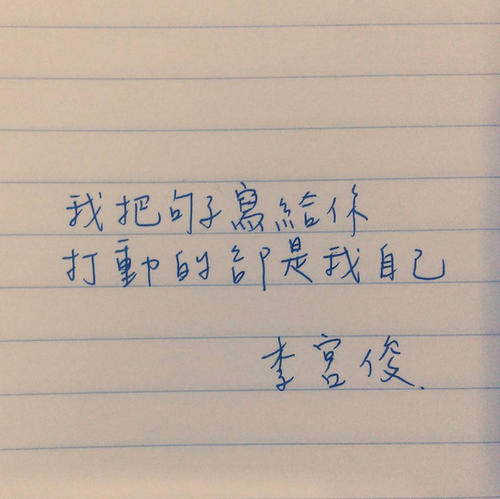 我把句子寫給你
打動的卻是我自己
李宮俊